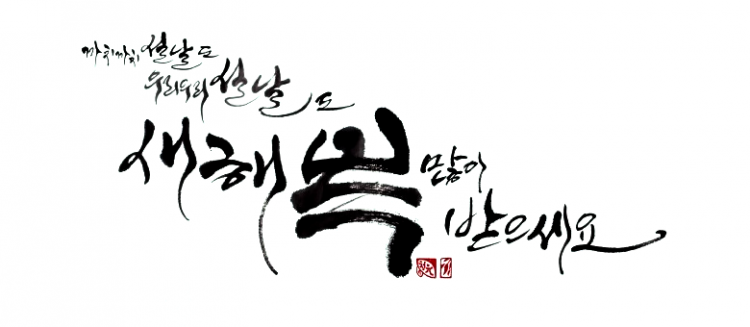 까치까치 설날도
우리우리 설날도
새해 복 많이
받으세요